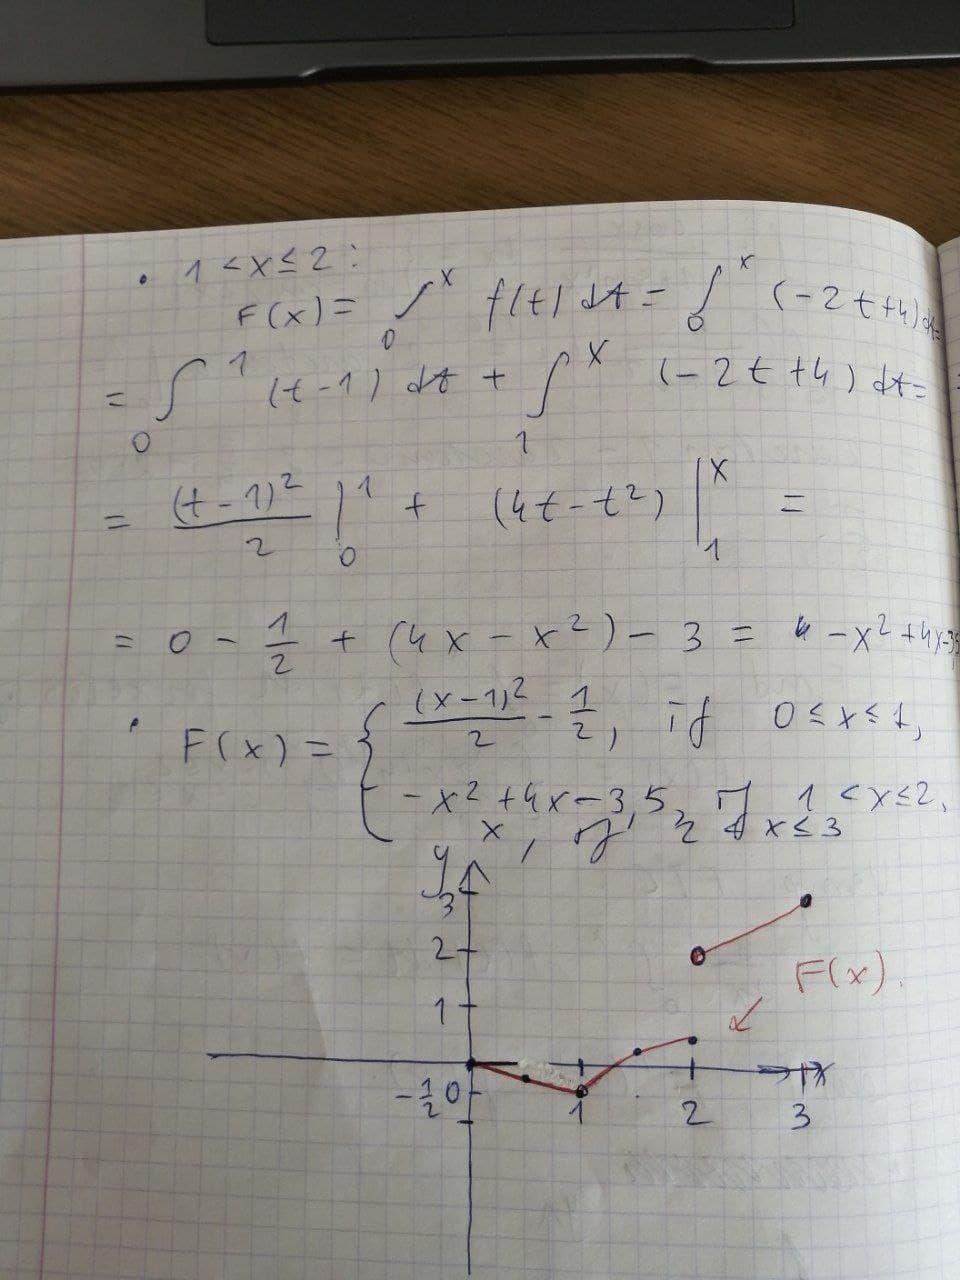 • 1 < x ≤ 2 :
F(x) = ∫₀ˣ f(t) dt = ∫₀ˣ (-2t+4) dt =
= ∫₀¹ (t-1) dt + ∫₁ˣ (-2t+4) dt =
= (t-1)²/2 |₀¹ + (4t-t²) |₁ˣ =
= 0 - 1/2 + (4x - x²) - 3 = -x² + 4x - 3,5
• F(x) = { (x-1)²/2 - 1/2, if 0 ≤ x ≤ 1,
-x² + 4x - 3,5, if 1 < x ≤ 2,
x, if 2 < x ≤ 3
y
3
2
F(x).
1
x
-1/2 0
1 2 3